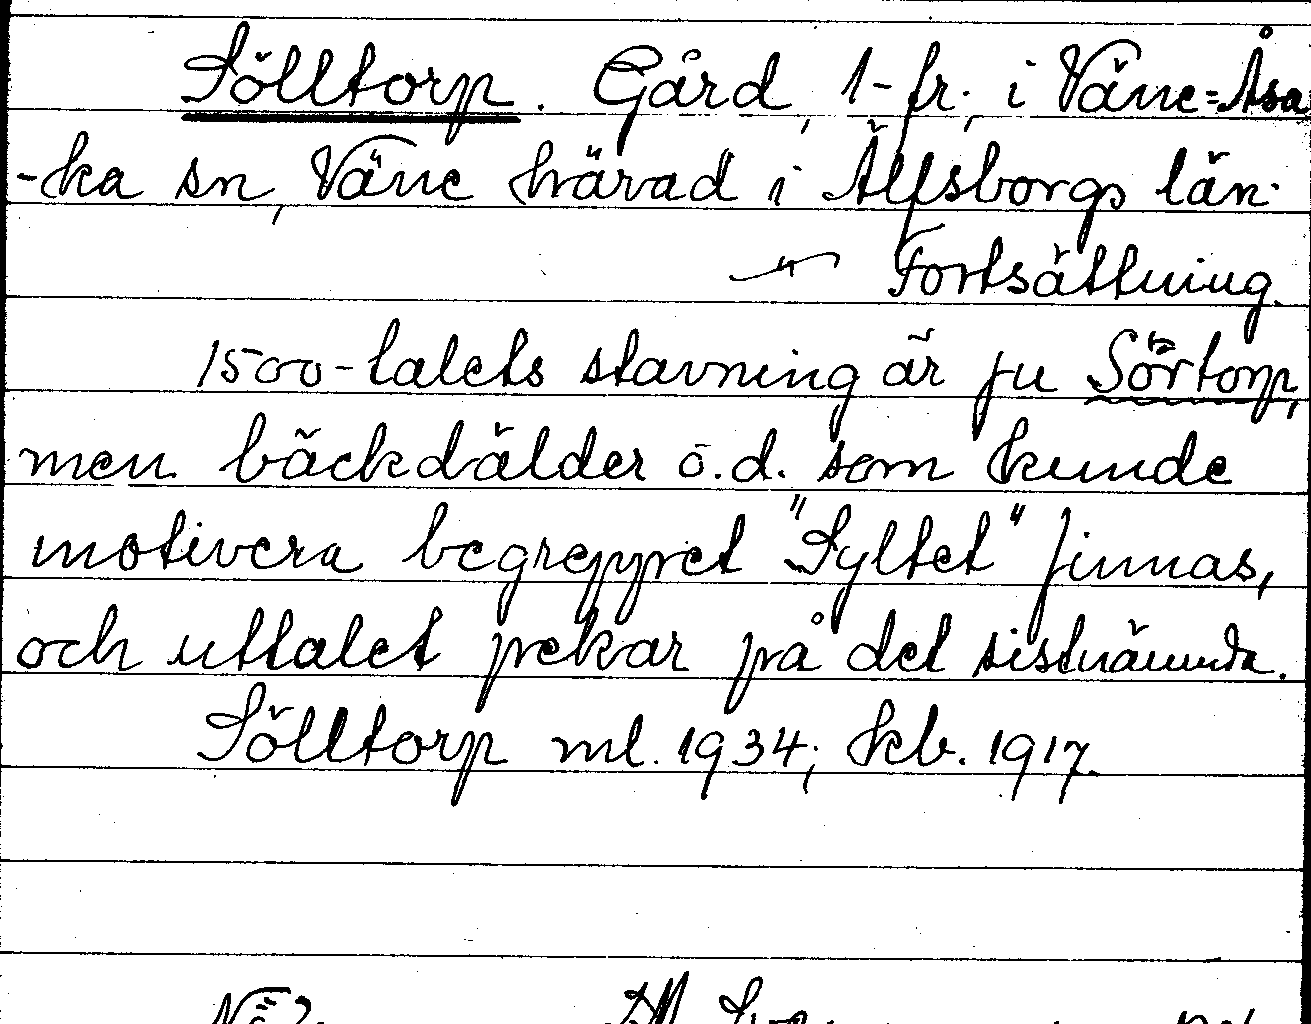 Sölltorp. Gård, 1-fr., i Väne=Åsa
-ka sn, Väne härad i Älfsborgs län.
" Fortsättning.
1500-talets stavning är ju Sörtorp,
men bäckdälder o.d. som kunde
motivera begreppet "Syltet" finnas,
och uttalet pekar på det sistnämnda.
Sölltorp ml. 1934; Skb. 1917.